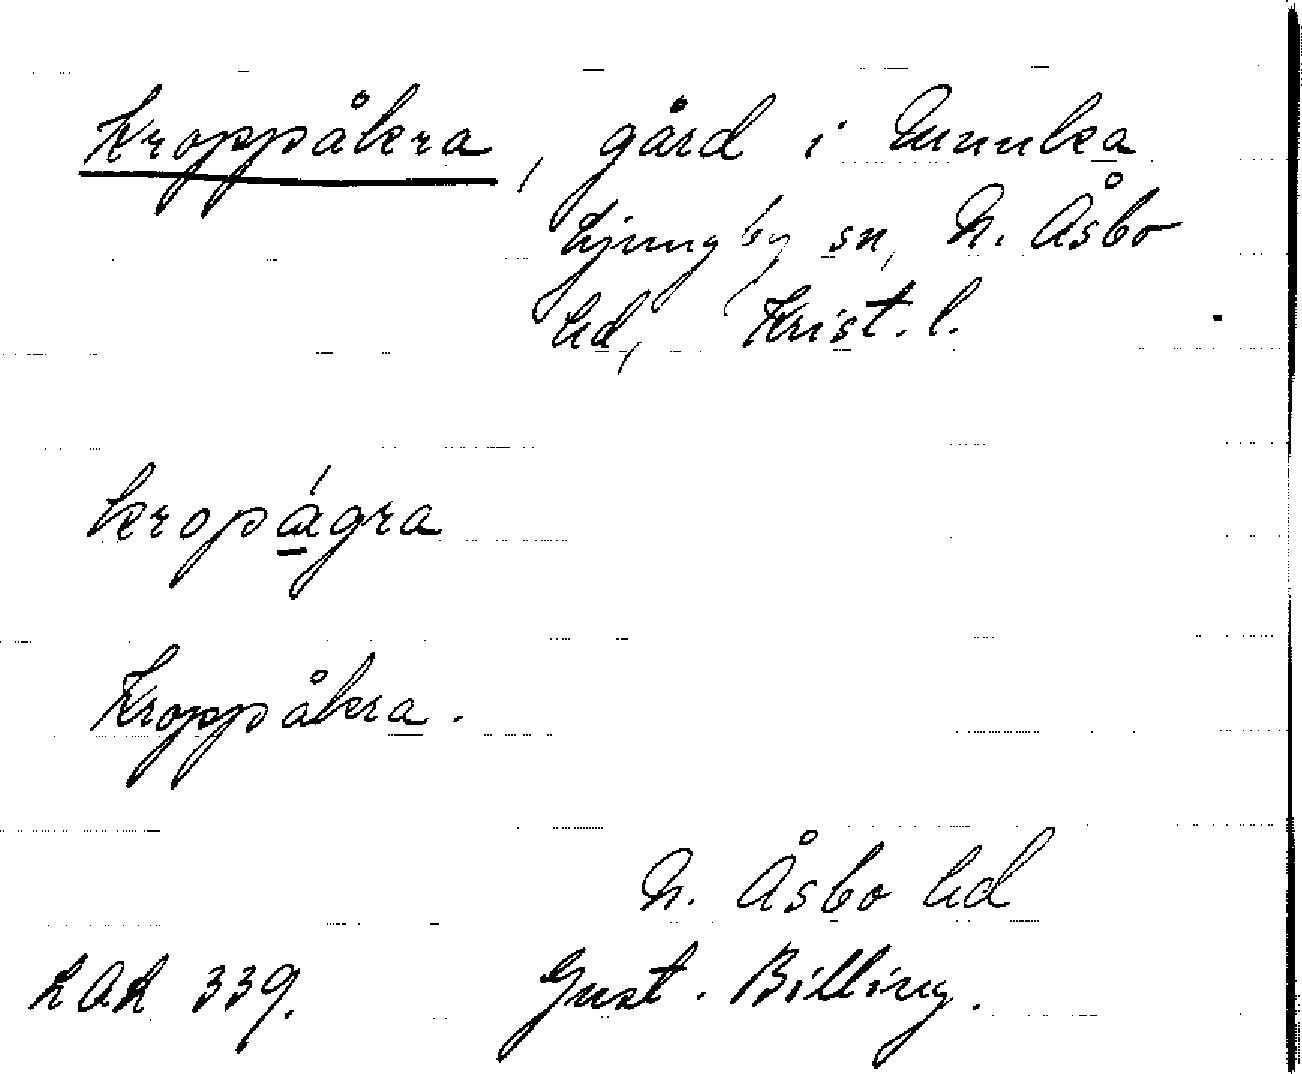 Kroppåkra, gård i Munka
Ljungby sn, N. Åsbo
hd, Krist. l.
kropágra
Kroppåkra.
N. Åsbo hd
LAL 339. Gust. Billing.